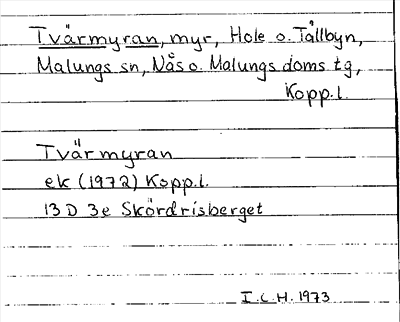 Tvärmyran, myr, Hole o. Tällbyn,
Malungs sn, Nås o. Malungs doms. tg,
Kopp.l.
Tvärmyran
ek (1972) Kopp.l.
13 D 3e Skördrisberget
I.L.H. 1973